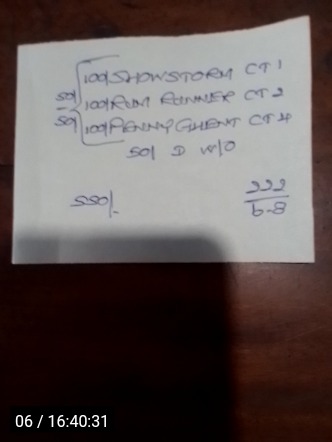 100/ SHOWSTORM CT 1
50/ 100/ RUM RUNNER CT 2
50/ 100/ PENNY GHENT CT 4
50/ D W/O
550/-
222
6-8
06 / 16:40:31